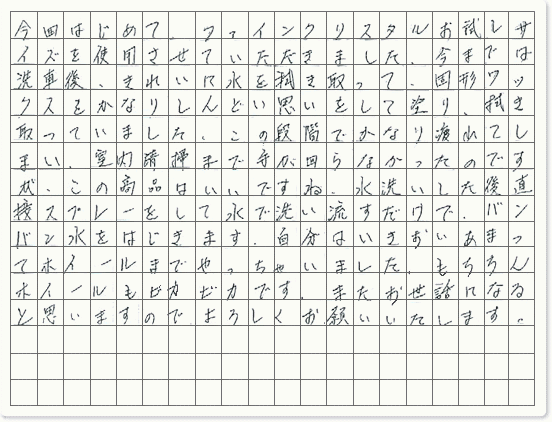 今回はじめて、ファインクリスタルお試しサ
イズを使用させていただきました。今までは
洗車後、きれいに水を拭き取って、固形ワッ
クスをかなりしんどい思いをして塗り、拭き
取っていました。この段階でかなり疲れてし
まい、室内清掃まで手が回らなかったのです
が、この商品はいいですね。水洗いした後直
接スプレーをして水で洗い流すだけで、バン
バン水をはじきます。自分はいきおいあまっ
てホイールまでやっちゃいました。もちろん
ホイールもピカピカです。またお世話になる
と思いますのでよろしくお願いいたします。